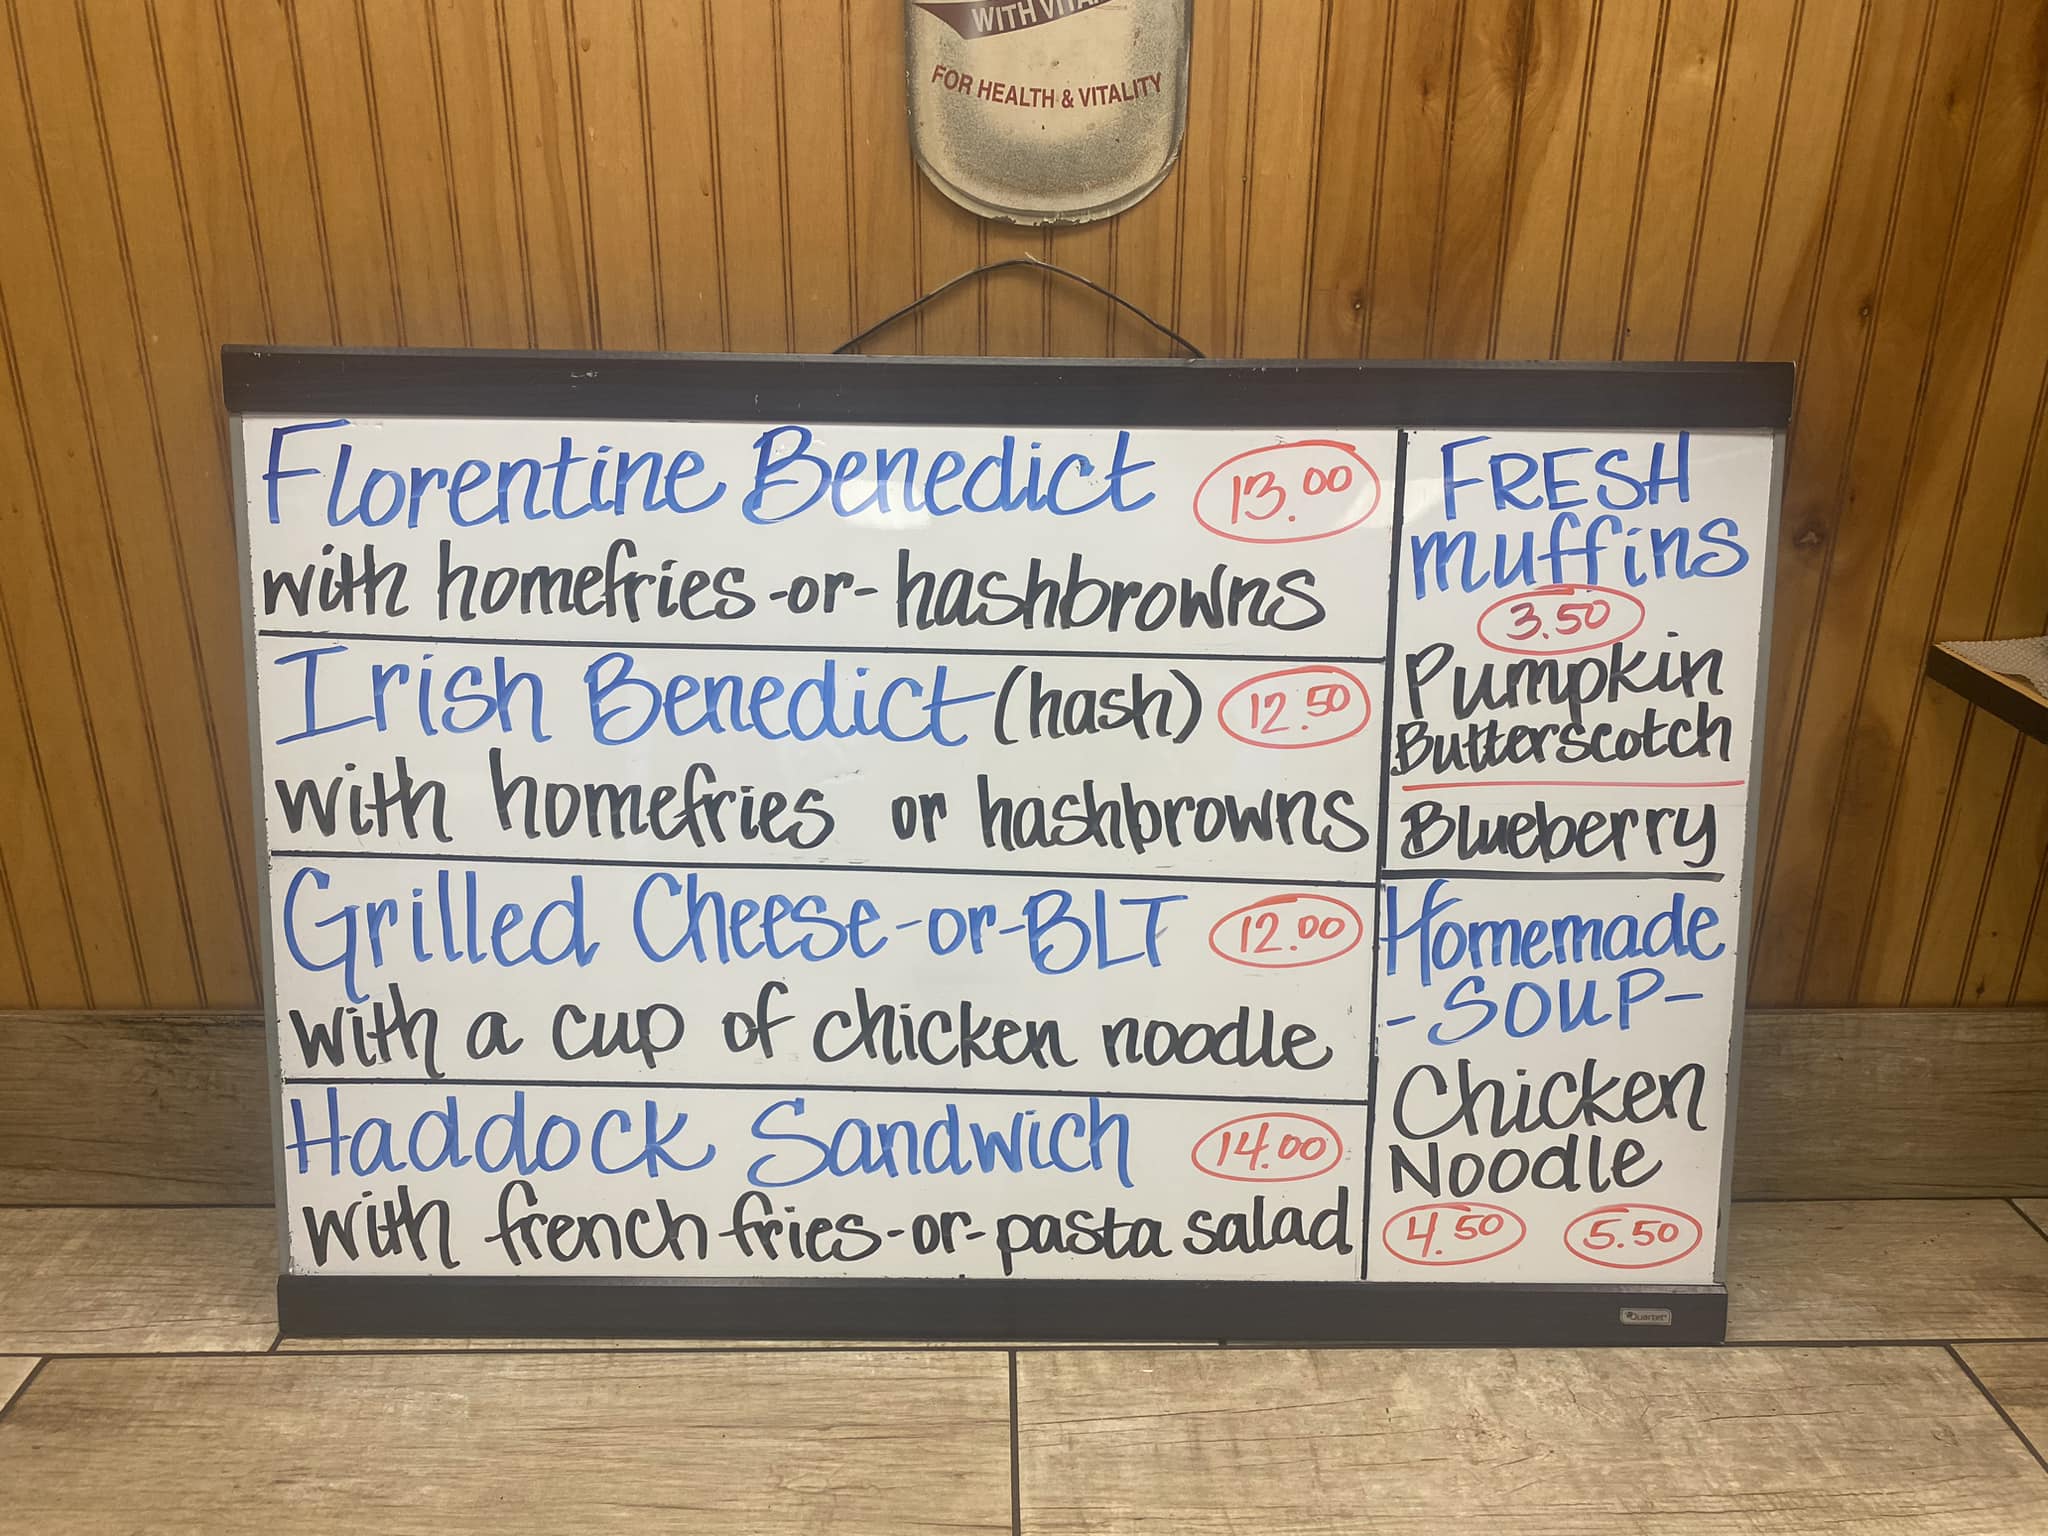 WITH VITA
FOR HEALTH & VITALITY
Florentine Benedict 13.00
with homefries -or- hashbrowns
Irish Benedict (hash) 12.50
with homefries or hashbrowns
Grilled Cheese -or- BLT 12.00
with a cup of chicken noodle
Haddock Sandwich 14.00
with french fries -or- pasta salad
FRESH
muffins
3.50
Pumpkin
Butterscotch
Blueberry
Homemade
- SOUP -
Chicken
Noodle
4.50 5.50
Quartet